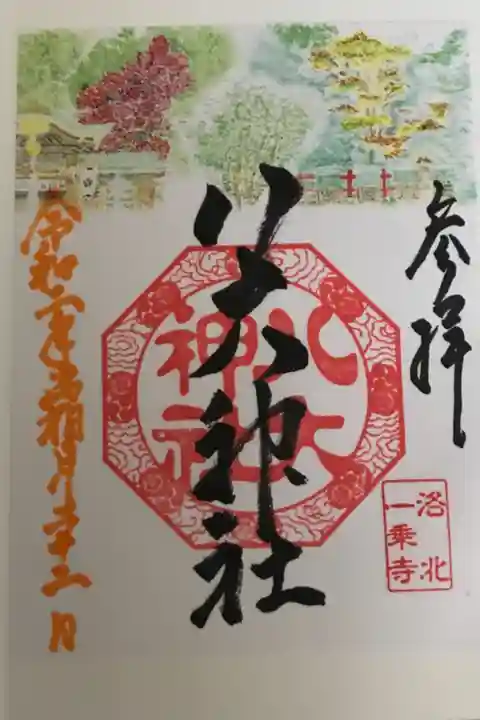 参拝
洛北
一乗寺
八大神社
八大
神社
令和 霜月 日